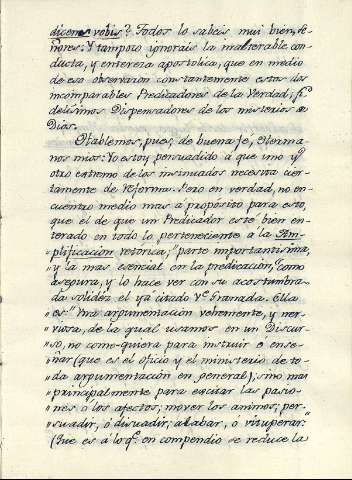 dicemus vobis? Todos lo sabeis mui bien, Se-
ñores: Y tampoco ignorais la inalterable con-
ducta, y entereza apostolica, que en medio
de eso observaron constantemente estos dos
incomparables Predicadores de la Verdad, fi-
delisimos Dispensadores de los misterios de
Dios.
Hablemos, pues, de buena fé, Herma-
nos mios: Yo estoy persuadido á que uno y
otro extremo de los insinuados necesita cier-
tamente de Reforma. Pero en verdad, no en-
cuentro medio mas á propósito para esto,
que el de que un Predicador esté bien en-
terado en todo lo perteneciente á la Am-
plificación retorica, "parte importantísima,
"y la mas esencial en la predicación, "como
asegura, y lo hace ver con su acostumbra-
da solidez el ya citado Ve. Granada. Ella
es: "Una argumentación vehemente, y ner-
"viosa, de la qual usamos en un Discur-
"so, no como-quiera para instruir ó ense-
"ñar (que es el oficio y el ministerio de to-
"da argumentación en general); sino mas
"principalmente para excitar las pasio-
"nes ó los afectos; mover los animos; per-
"suadir, ó disuadir; alabar, ó vituperar:"
(Que es á lo qe. en compendio se reduce la